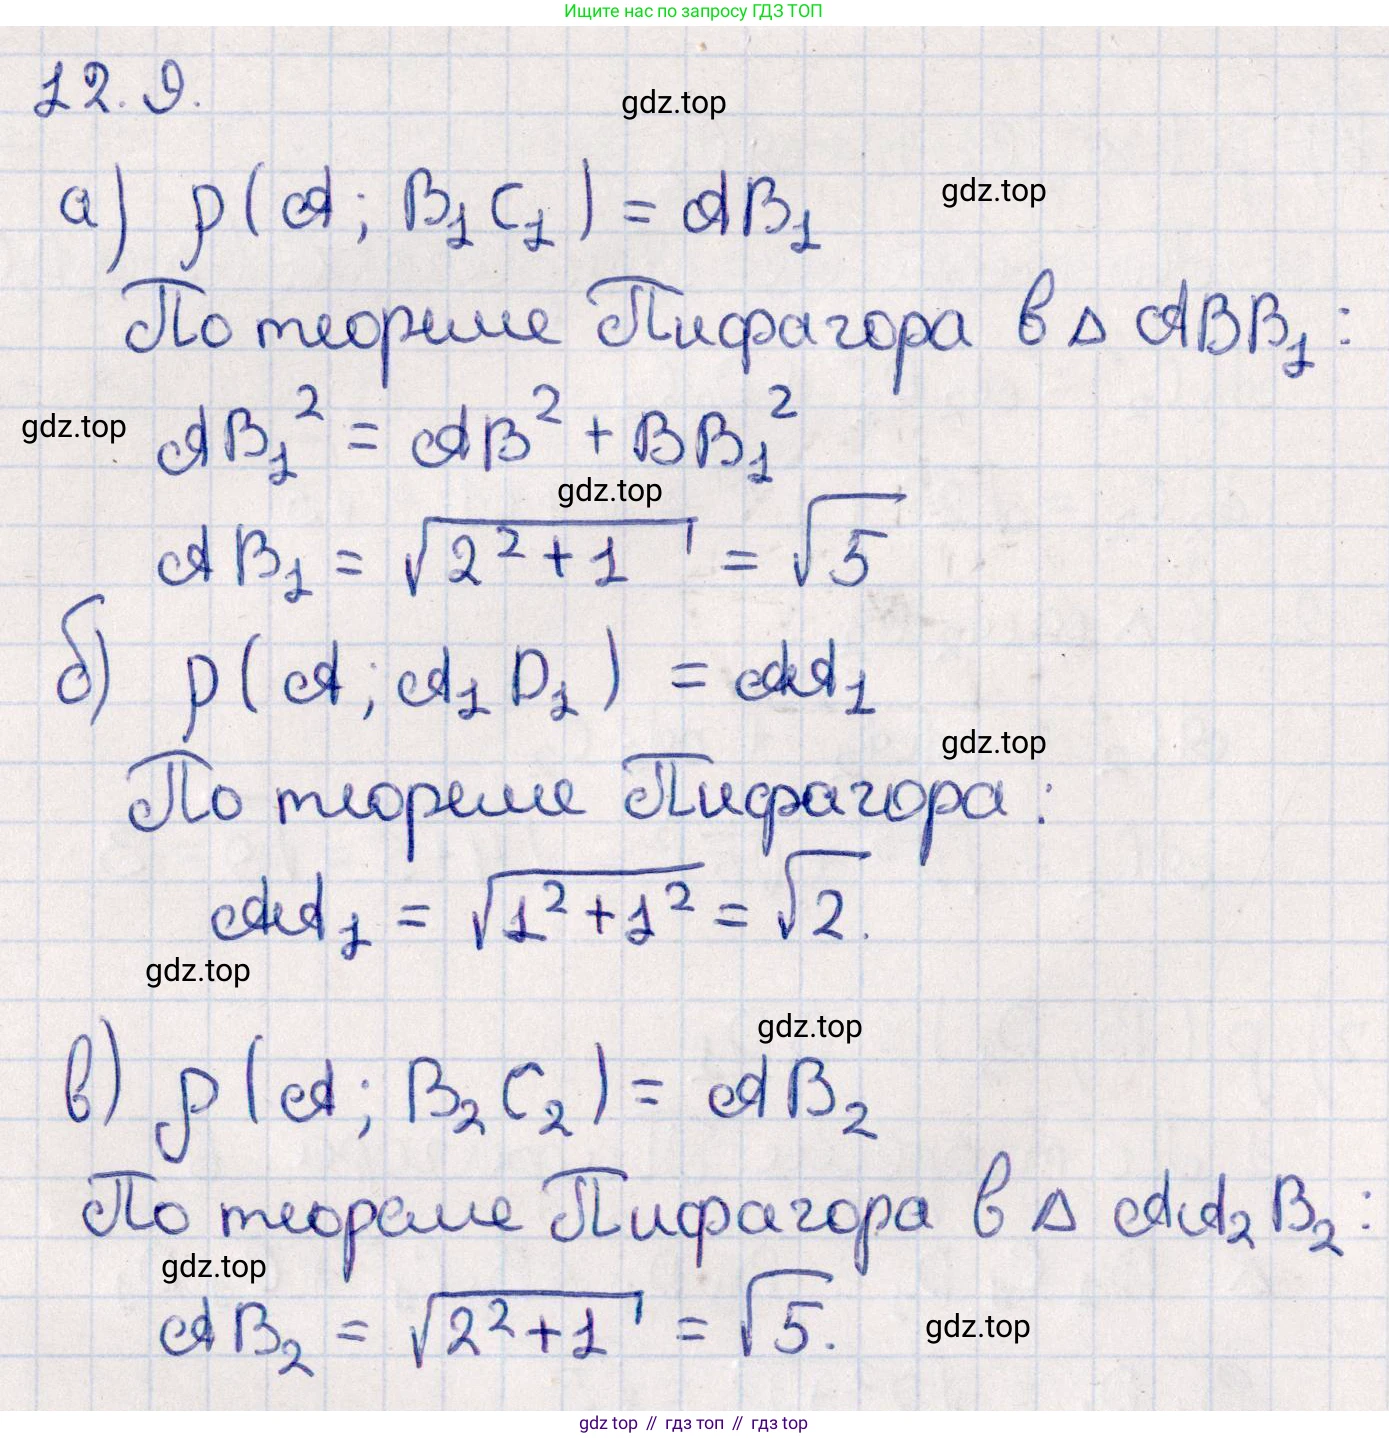 Ищите нас по запросу ГДЗ ТОП
12.9.
gdz.top
а) ρ(A; B₁C₁) = AB₁
gdz.top
По теореме Пифагора в △ ABB₁:
gdz.top
AB₁² = AB² + BB₁²
gdz.top
AB₁ = √(2² + 1) = √5
б) ρ(A; A₁D₁) = AA₁
gdz.top
По теореме Пифагора:
AA₁ = √(1² + 1²) = √2.
gdz.top
gdz.top
в) ρ(A; B₂C₂) = AB₂
По теореме Пифагора в △ AA₂B₂:
gdz.top
AB₂ = √(2² + 1) = √5.
gdz.top
gdz top // гдз топ // гдз top